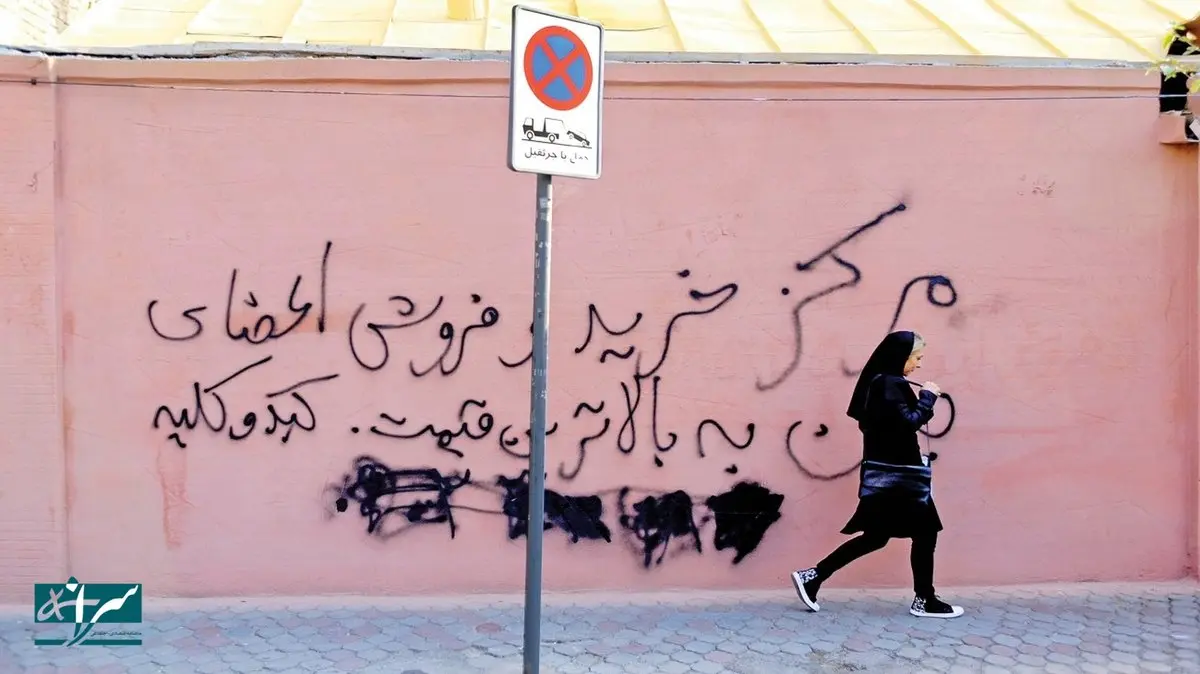 حمل با جرثقیل
مرکز خرید و فروش اعضای
بدن به بالاترین قیمت. کبد و کلیه